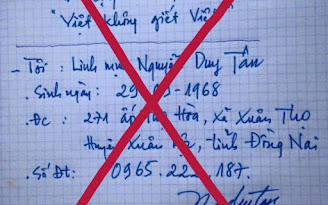 "Việt không giết Việt"
- Tôi : Linh mục Nguyễn Duy Tân
. Sinh ngày: 29 1968
. Đc : 271 ấp Thọ Hòa, xã Xuân Thọ
Huyện Xuân tỉnh Đồng Nai
. Số Đt: 0965. 22 187.